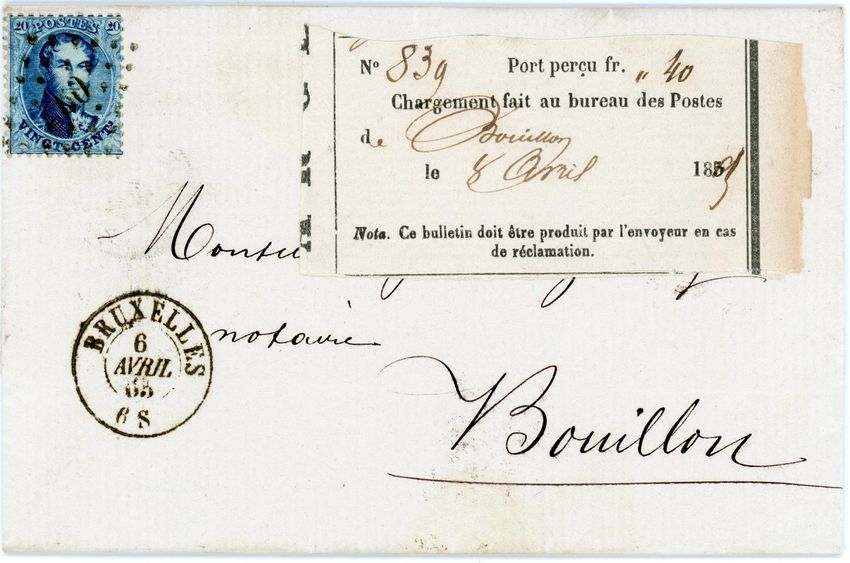 20 POSTES 20
60
VINGT CENT.
Nº 839 Port perçu fr. „ 40
Chargement fait au bureau des Postes
de Bouillon
le 8 Avril 185
Nota. Ce bulletin doit être produit par l'envoyeur en cas
de réclamation.
Monsieu
notaire
Bouillon
BRUXELLES
6
AVRIL
65
6 S